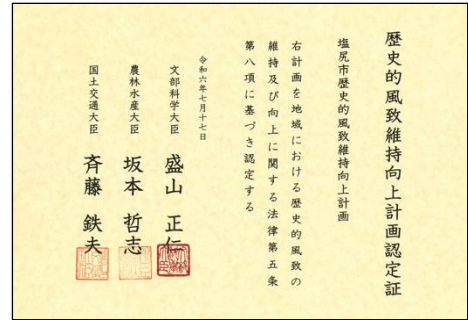 歴史的風致維持向上計画認定証
塩尻市歴史的風致維持向上計画
右計画を地域における歴史的風致の
維持及び向上に関する法律第五条
第八項に基づき認定する
令和六年七月十七日
文部科学大臣 盛山 正仁
農林水産大臣 坂本 哲志
国土交通大臣 斉藤 鉄夫